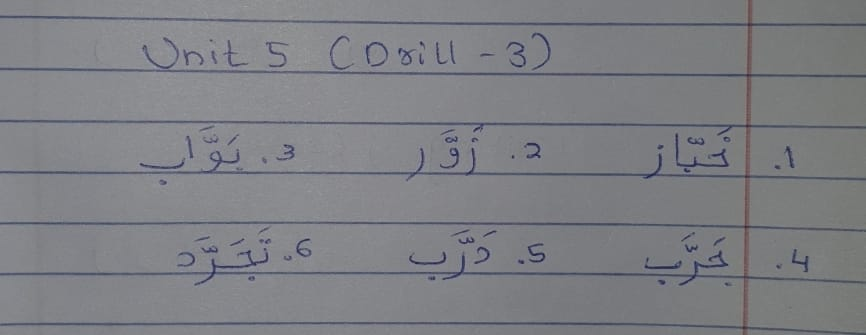 Unit 5 (Drill - 3)
1. خَبَّاز 2. زَوَّر 3. بَوَّاب
4. جَرَّب 5. دَرَّب 6. تَجَرَّد